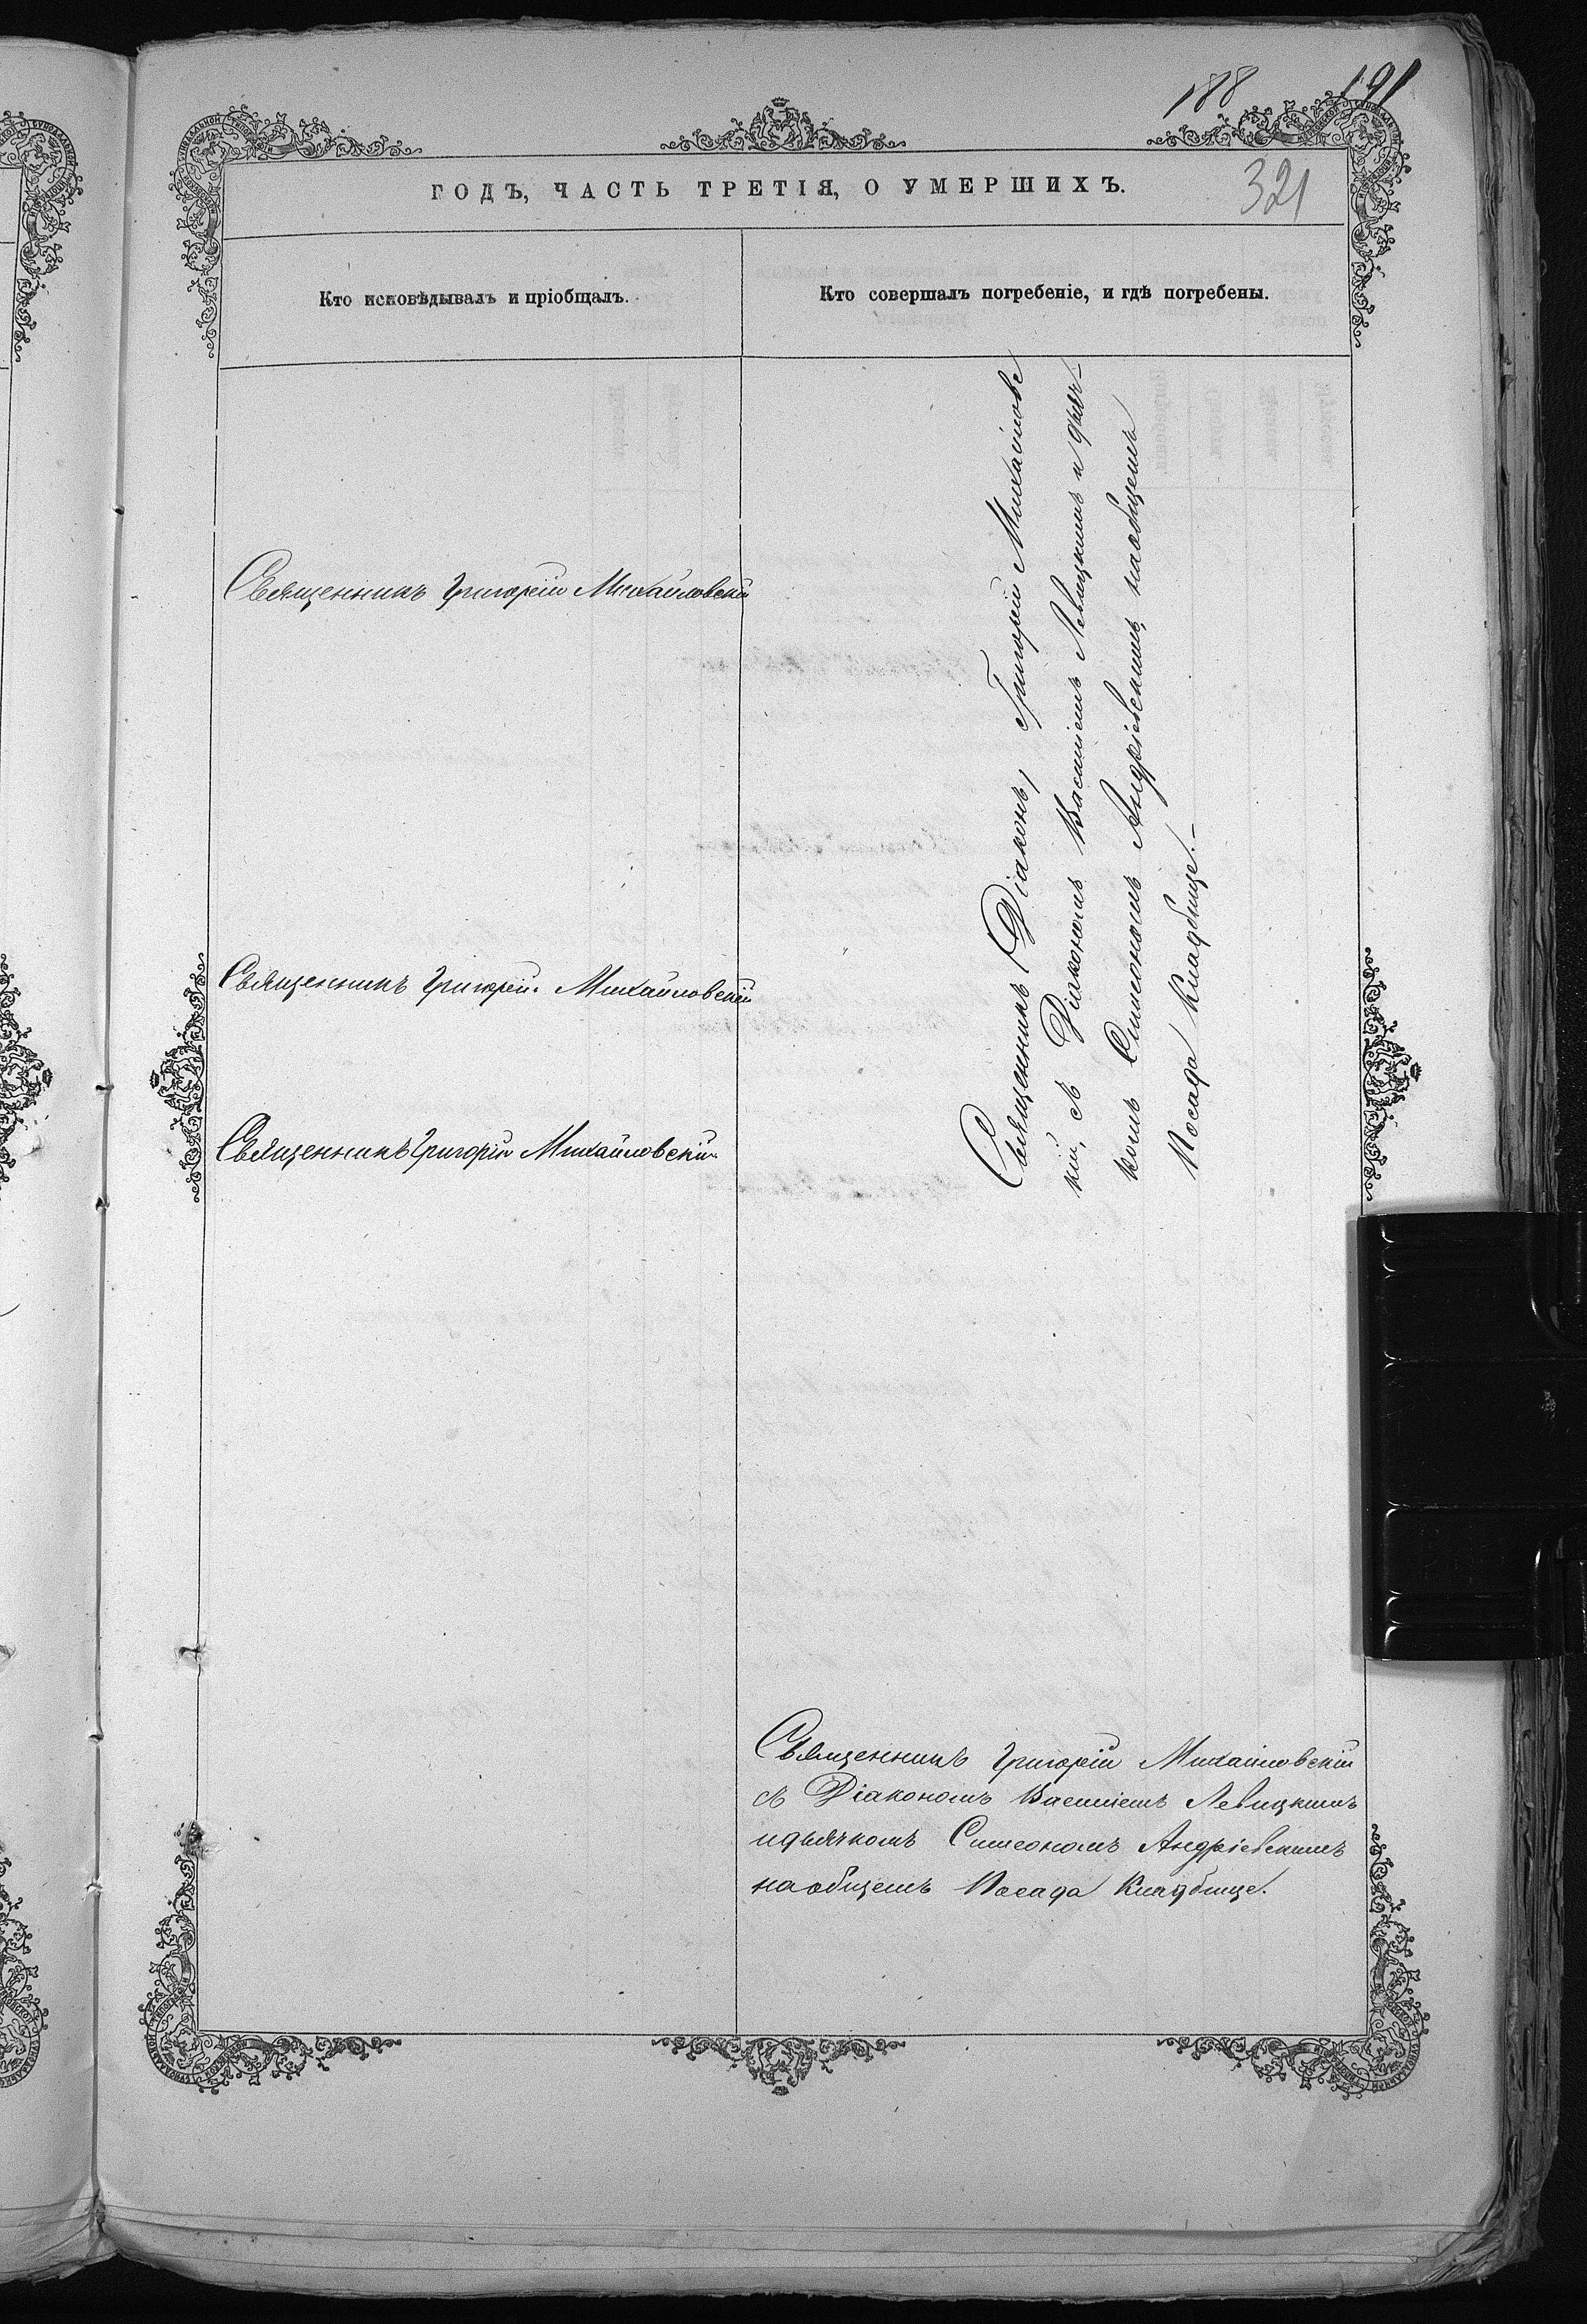 188 191
ГОДЪ, ЧАСТЬ ТРЕТІЯ, О УМЕРШИХЪ. 321
Кто исповѣдывалъ и пріобщалъ.
Кто совершалъ погребеніе, и гдѣ погребены.
Священникъ Григорій Михайловскій
Священникъ Григорій Михайловскій
Священникъ Григорій Михайловскій
Священникъ (Діаконъ) Григорій Михайловс
кій, съ Діакономъ Василіемъ Левицкимъ и дьяч-
комъ Симеономъ Андріевскимъ, на общемъ
Посада Кладбище.–
Священникъ Григорій Михайловскій
съ Діакономъ Василіемъ Левицкимъ
и дьячкомъ Симеономъ Андріевскимъ
на общемъ Посада Кладбище.